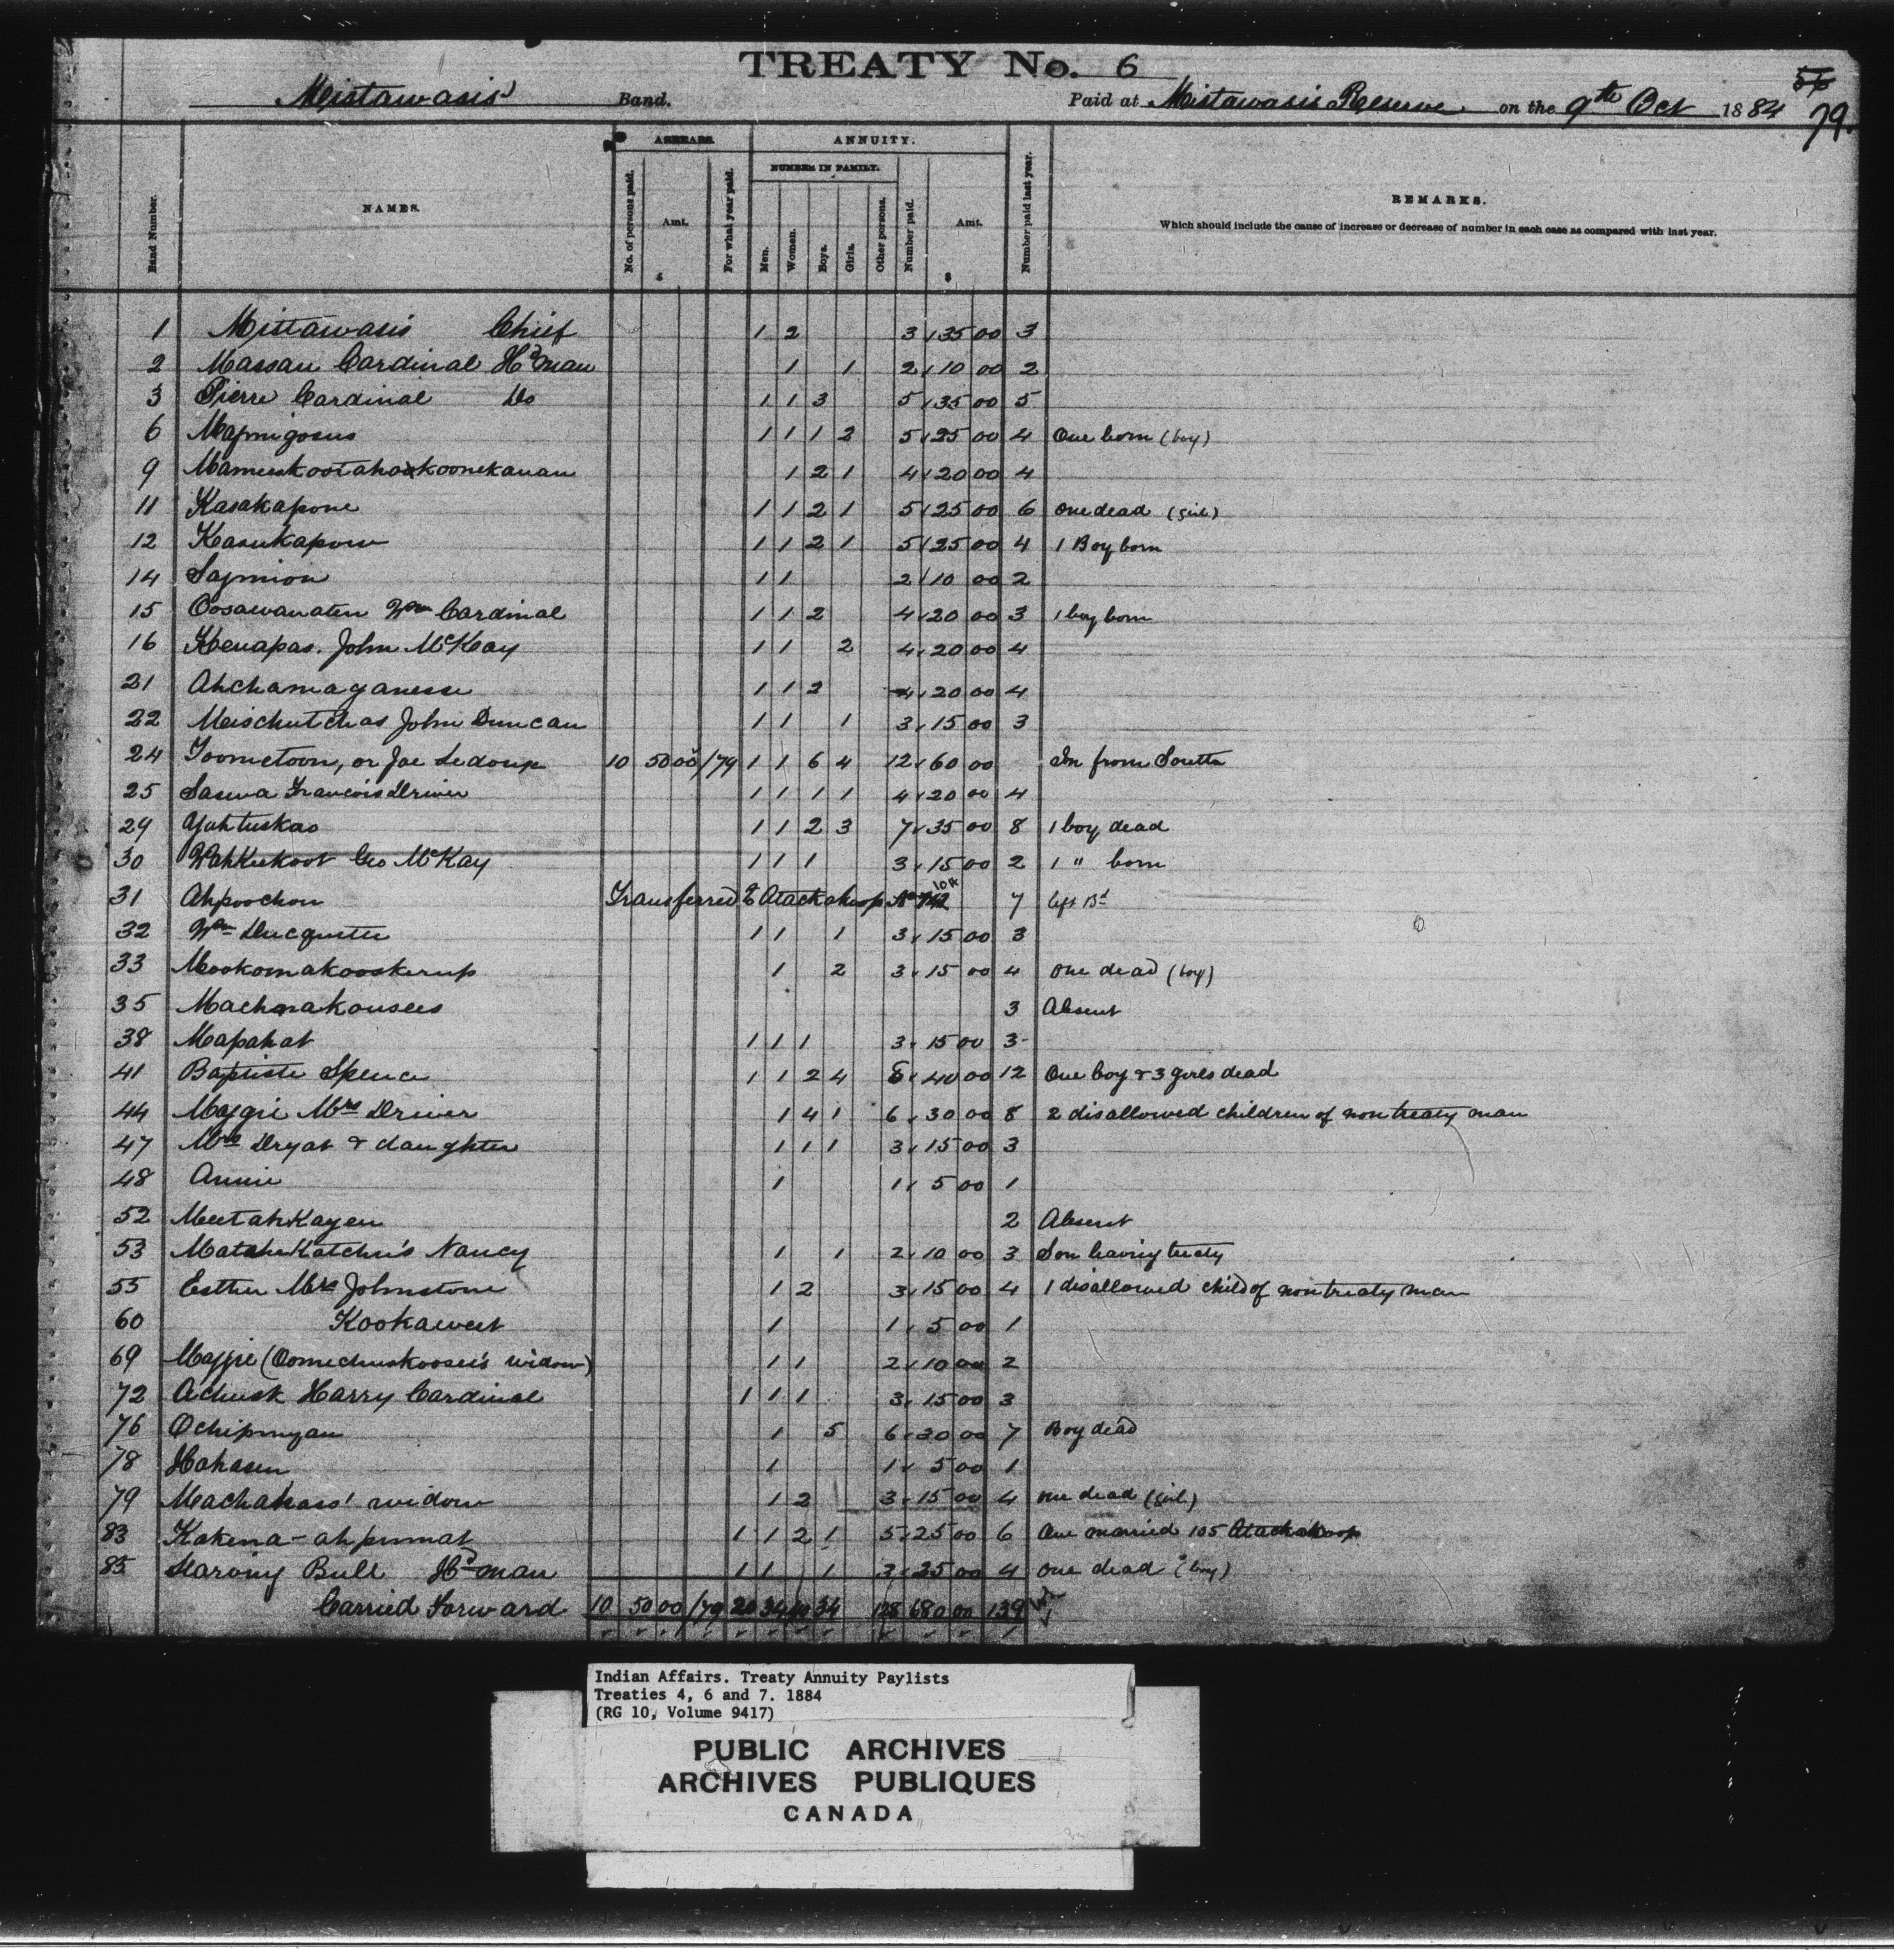 TREATY No. 6
56
Mistawasis Band. Paid at Mistawasis Reserve on the 9th Oct 1884 79.
ARREARS. ANNUITY.
NUMBER IN FAMILY.
Band Number. NAMES. No. of persons paid. Amt. $ For what year paid. Men. Women. Boys. Girls. Other persons. Number paid. Amt. $ Number paid last year. REMARKS.
Which should include the cause of increase or decrease of number in each case as compared with last year.
1 Mistawasis Chief 1 2 3 35 00 3
2 Massan Cardinal Hd man 1 1 2 10 00 2
3 Pierre Cardinal Do 1 1 3 5 35 00 5
6 1 1 1 2 5 25 00 4 One born (boy)
9 1 2 1 4 20 00 4
11 Kasakapone 1 1 2 1 5 25 00 6 one dead (girl)
12 1 1 2 1 5 25 00 4 1 Boy born
14 1 1 2 10 00 2
15 Oosawanaten Wm Cardinal 1 1 2 4 20 00 3 1 boy born
16 Kenapas. John McKay 1 1 2 4 20 00 4
21 Ahchamaganesse 1 1 2 4 20 00 4
22 Meischutchas John Duncan 1 1 1 3 15 00 3
24 Toometoon, or Joe Ledoux 10 50 00 /79 1 1 6 4 12 60 00 In from South
25 Francois Driver 1 1 1 1 4 20 00 4
29 Yahtuskas 1 1 2 3 7 35 00 8 1 boy dead
30 Wahkeekoot Geo McKay 1 1 1 3 15 00 2 1 " born
31 Ahpoochon Transferred to Atackakoop No 104 7 left Bd
32 Wm Ducquette 1 1 1 3 15 00 3
33 Mookomakooskerup 1 2 3 15 00 4 one dead (boy)
35 Machnakousees 3 Absent
38 Mapahat 1 1 1 3 15 00 3
41 Baptiste Spence 1 1 2 4 8 40 00 12 One boy & 3 girls dead
44 Maggie Mrs Driver 1 4 1 6 30 00 8 2 disallowed children of non treaty man
47 Mrs Dryat & daughter 1 1 1 3 15 00 3
48 Annie 1 1 5 00 1
52 MeetahKayen 2 Absent
53 Nancy 1 1 2 10 00 3 Son leaving treaty
55 Esther Mrs Johnstone 1 2 3 15 00 4 1 disallowed child of non treaty man
60 Kookaweet 1 1 5 00 1
69 Maggie (Oomechuskoosee's widow) 1 1 2 10 00 2
72 Achusk Harry Cardinal 1 1 1 3 15 00 3
76 Ochipmyan 1 5 6 30 00 7 Boy dead
78 Hahasen 1 1 5 00 1
79 Machahass' widow 1 2 3 15 00 4 one dead (girl)
83 Kakena-ahpumat 1 1 2 1 5 25 00 6 One married 105 Atackakoop
85 Starving Bull Hd man 1 1 1 3 25 00 4 one dead (boy)
Carried Forward 10 50 00 /79 20 34 40 34 128 680 00 139
Indian Affairs. Treaty Annuity Paylists
Treaties 4, 6 and 7. 1884
(RG 10, Volume 9417)
PUBLIC ARCHIVES
ARCHIVES PUBLIQUES
CANADA